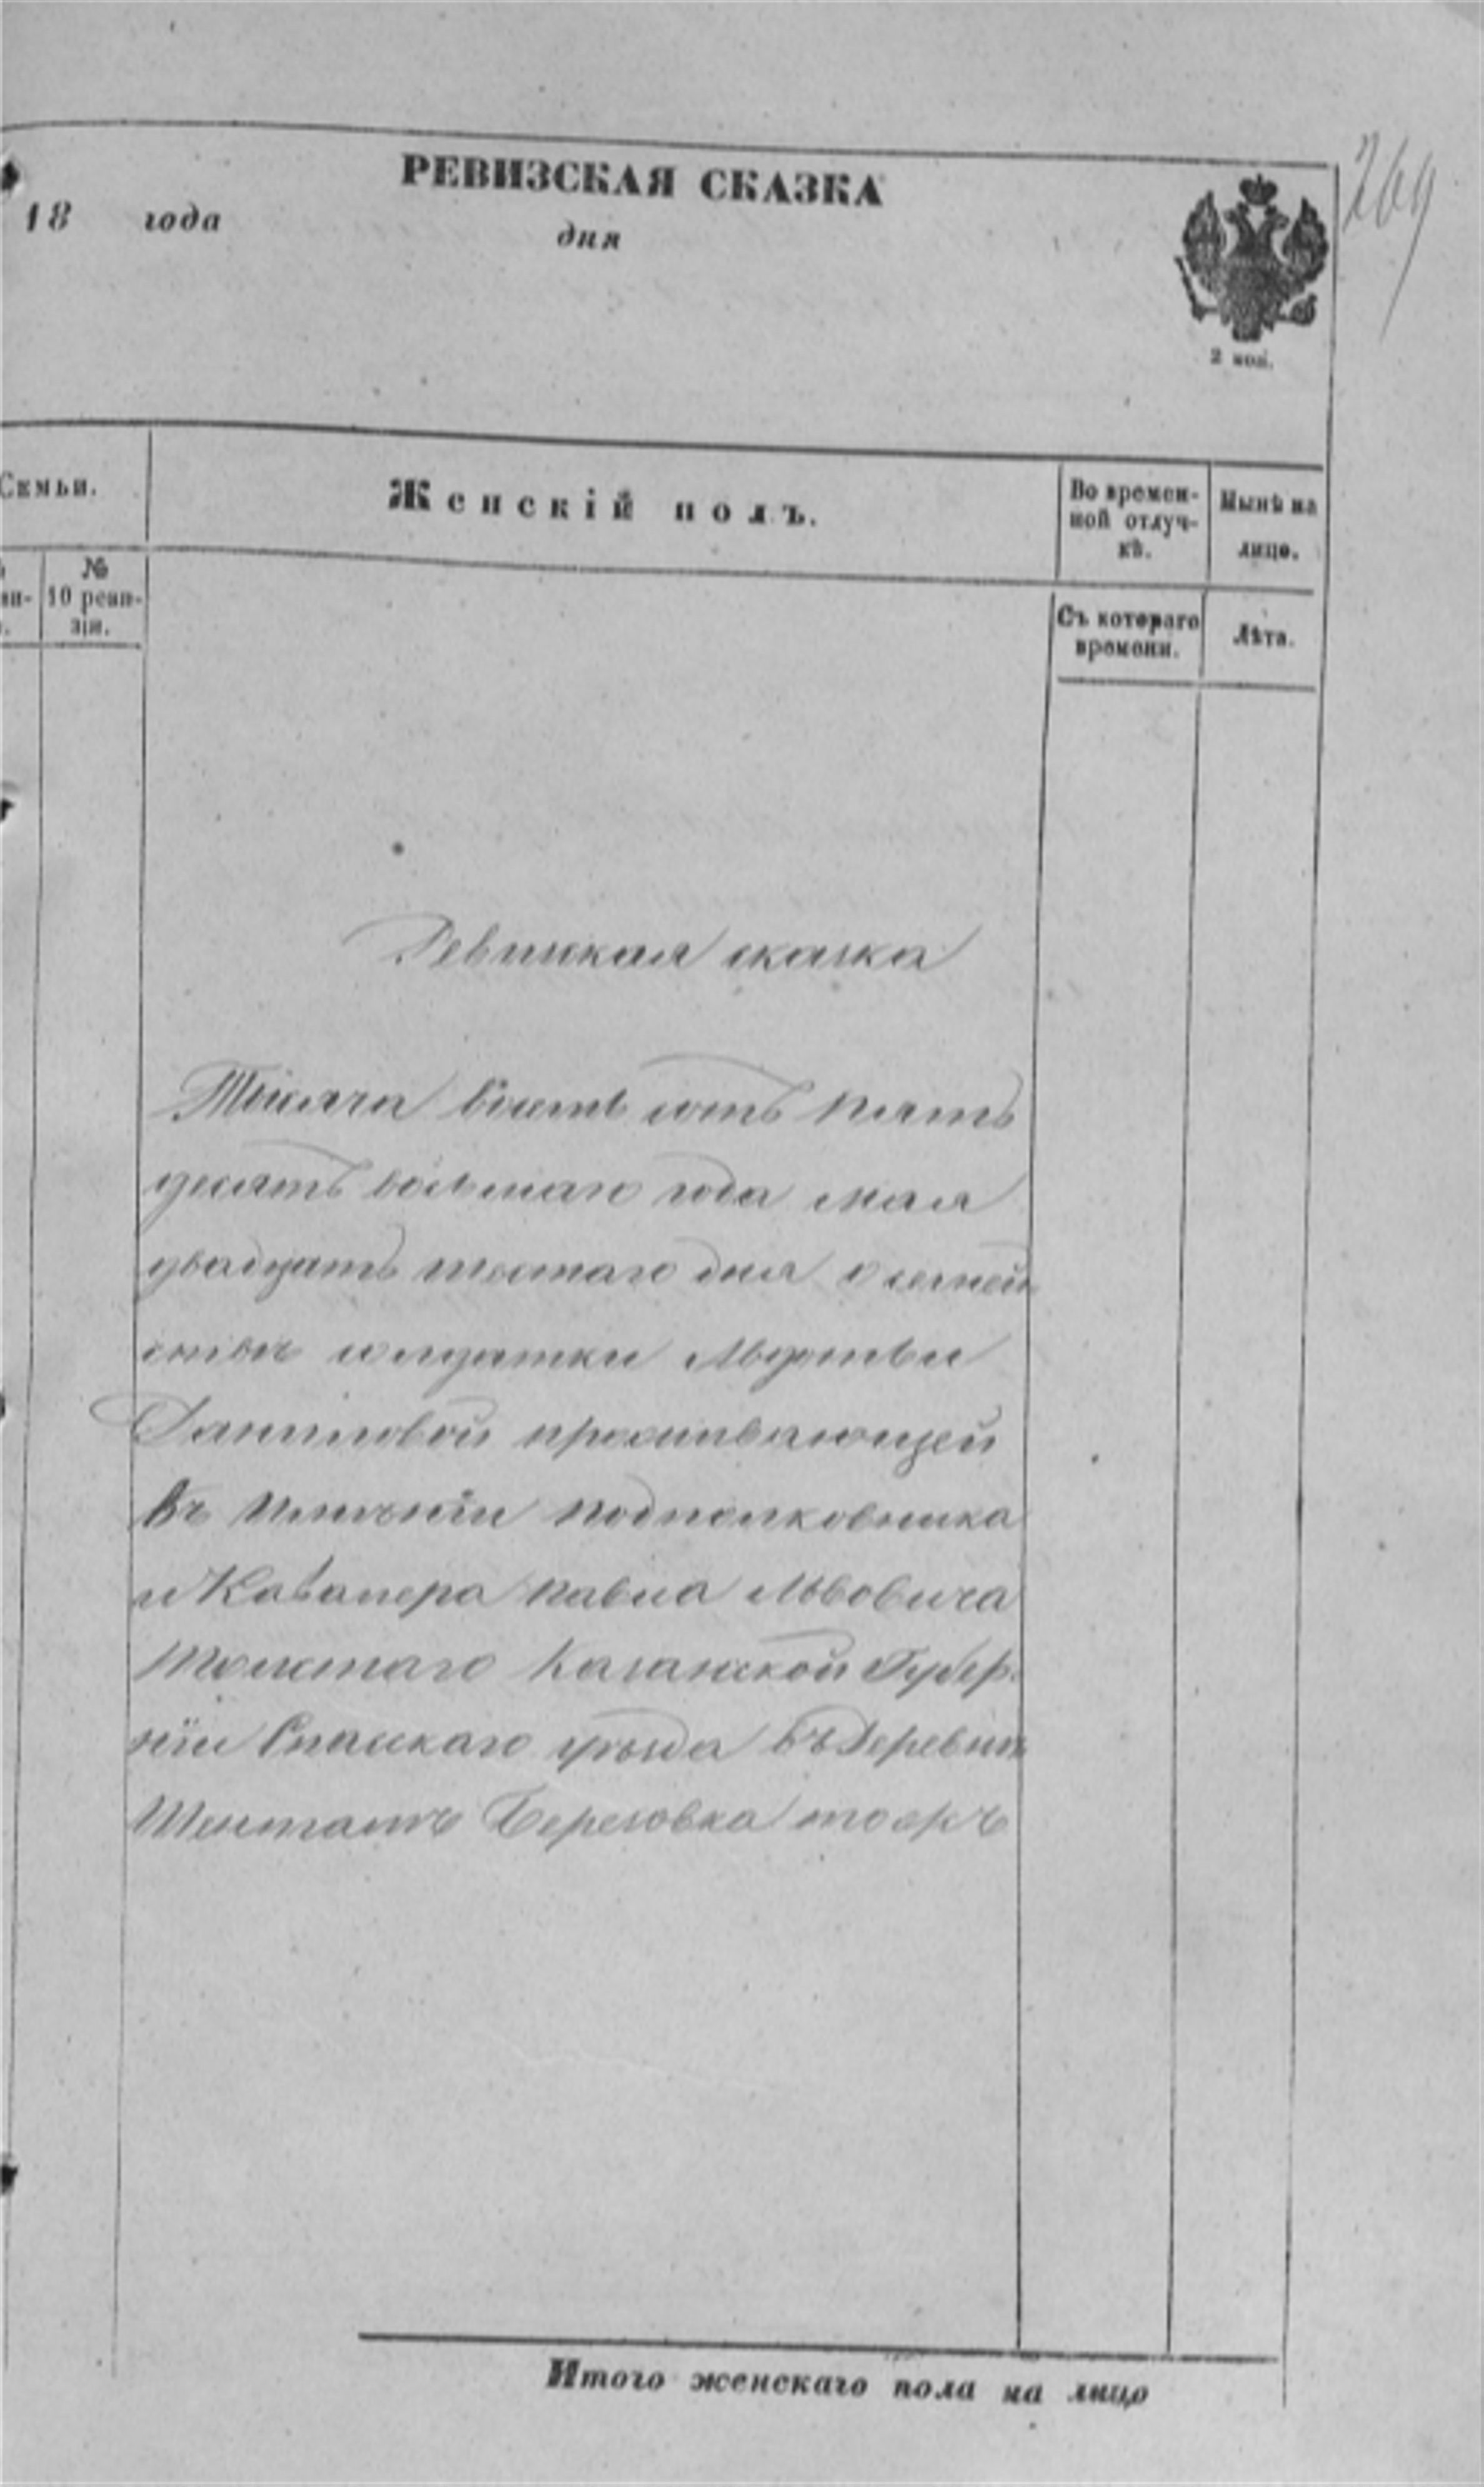 269
РЕВИЗСКАЯ СКАЗКА
18 года дня
2 коп.
Семьи.
Женскій полъ.
Во времен-
ной отлуч-
кѣ.
Нынѣ на
лицо.
№
10 реви-
зіи.
Съ котораго
времени.
Лѣта.
Ревизкая сказка
Тысяча восемь сотъ пять
десятъ восьмаго года мая
двадцать шестаго дня о семей
ствѣ солдатки Авдотьи
Даниловой проживающей
въ имѣніи подполковника
и Кавалера Павла Львовича
Толстаго Казанской Губер-
ніи Спаскаго уѣзда въ деревни
Шентатъ Березовка тоежъ
Итого женскаго пола на лицо